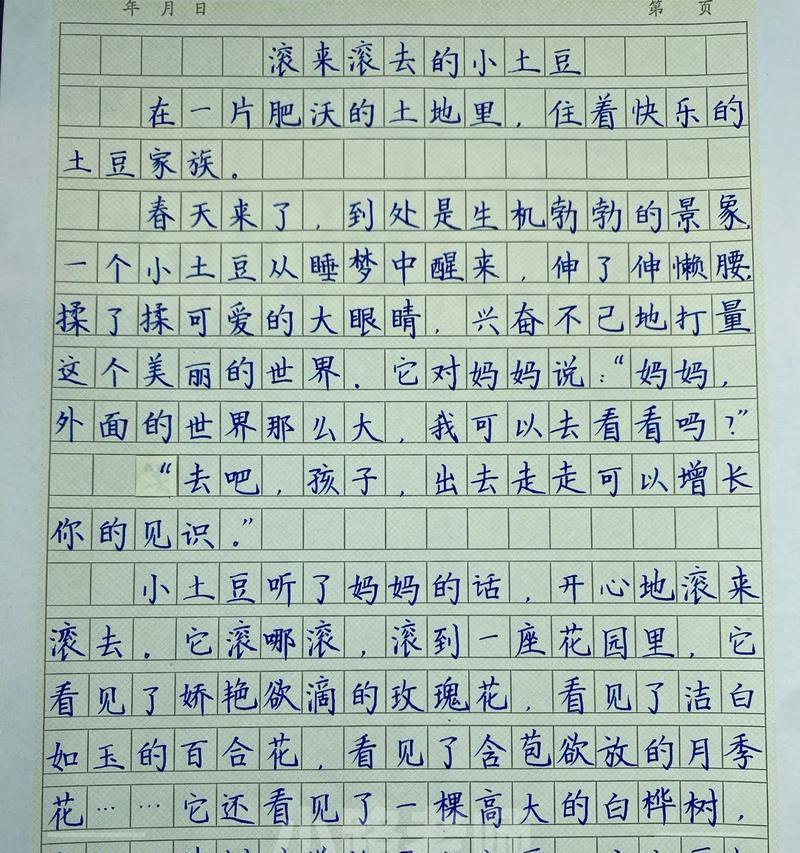 年 月 日 第 页
滚来滚去的小土豆
在一片肥沃的土地里，住着快乐的
土豆家族。
春天来了，到处是生机勃勃的景象，
一个小土豆从睡梦中醒来，伸了伸懒腰，
揉了揉可爱的大眼睛，兴奋不已地打量
这个美丽的世界。它对妈妈说：“妈妈，
外面的世界那么大，我可以去看看吗？”
“去吧，孩子，出去走走可以增长
你的见识。”
小土豆听了妈妈的话，开心地滚来
滚去。它滚哪滚，滚到一座花园里，它
看见了娇艳欲滴的玫瑰花，看见了洁白
如玉的百合花，看见了含苞欲放的月季
花……它还看见了一棵高大的白桦树，